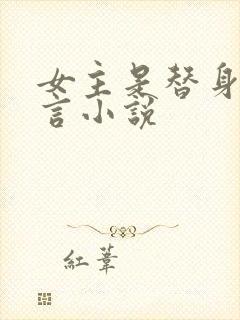 女主是替身
言小説
紅葦